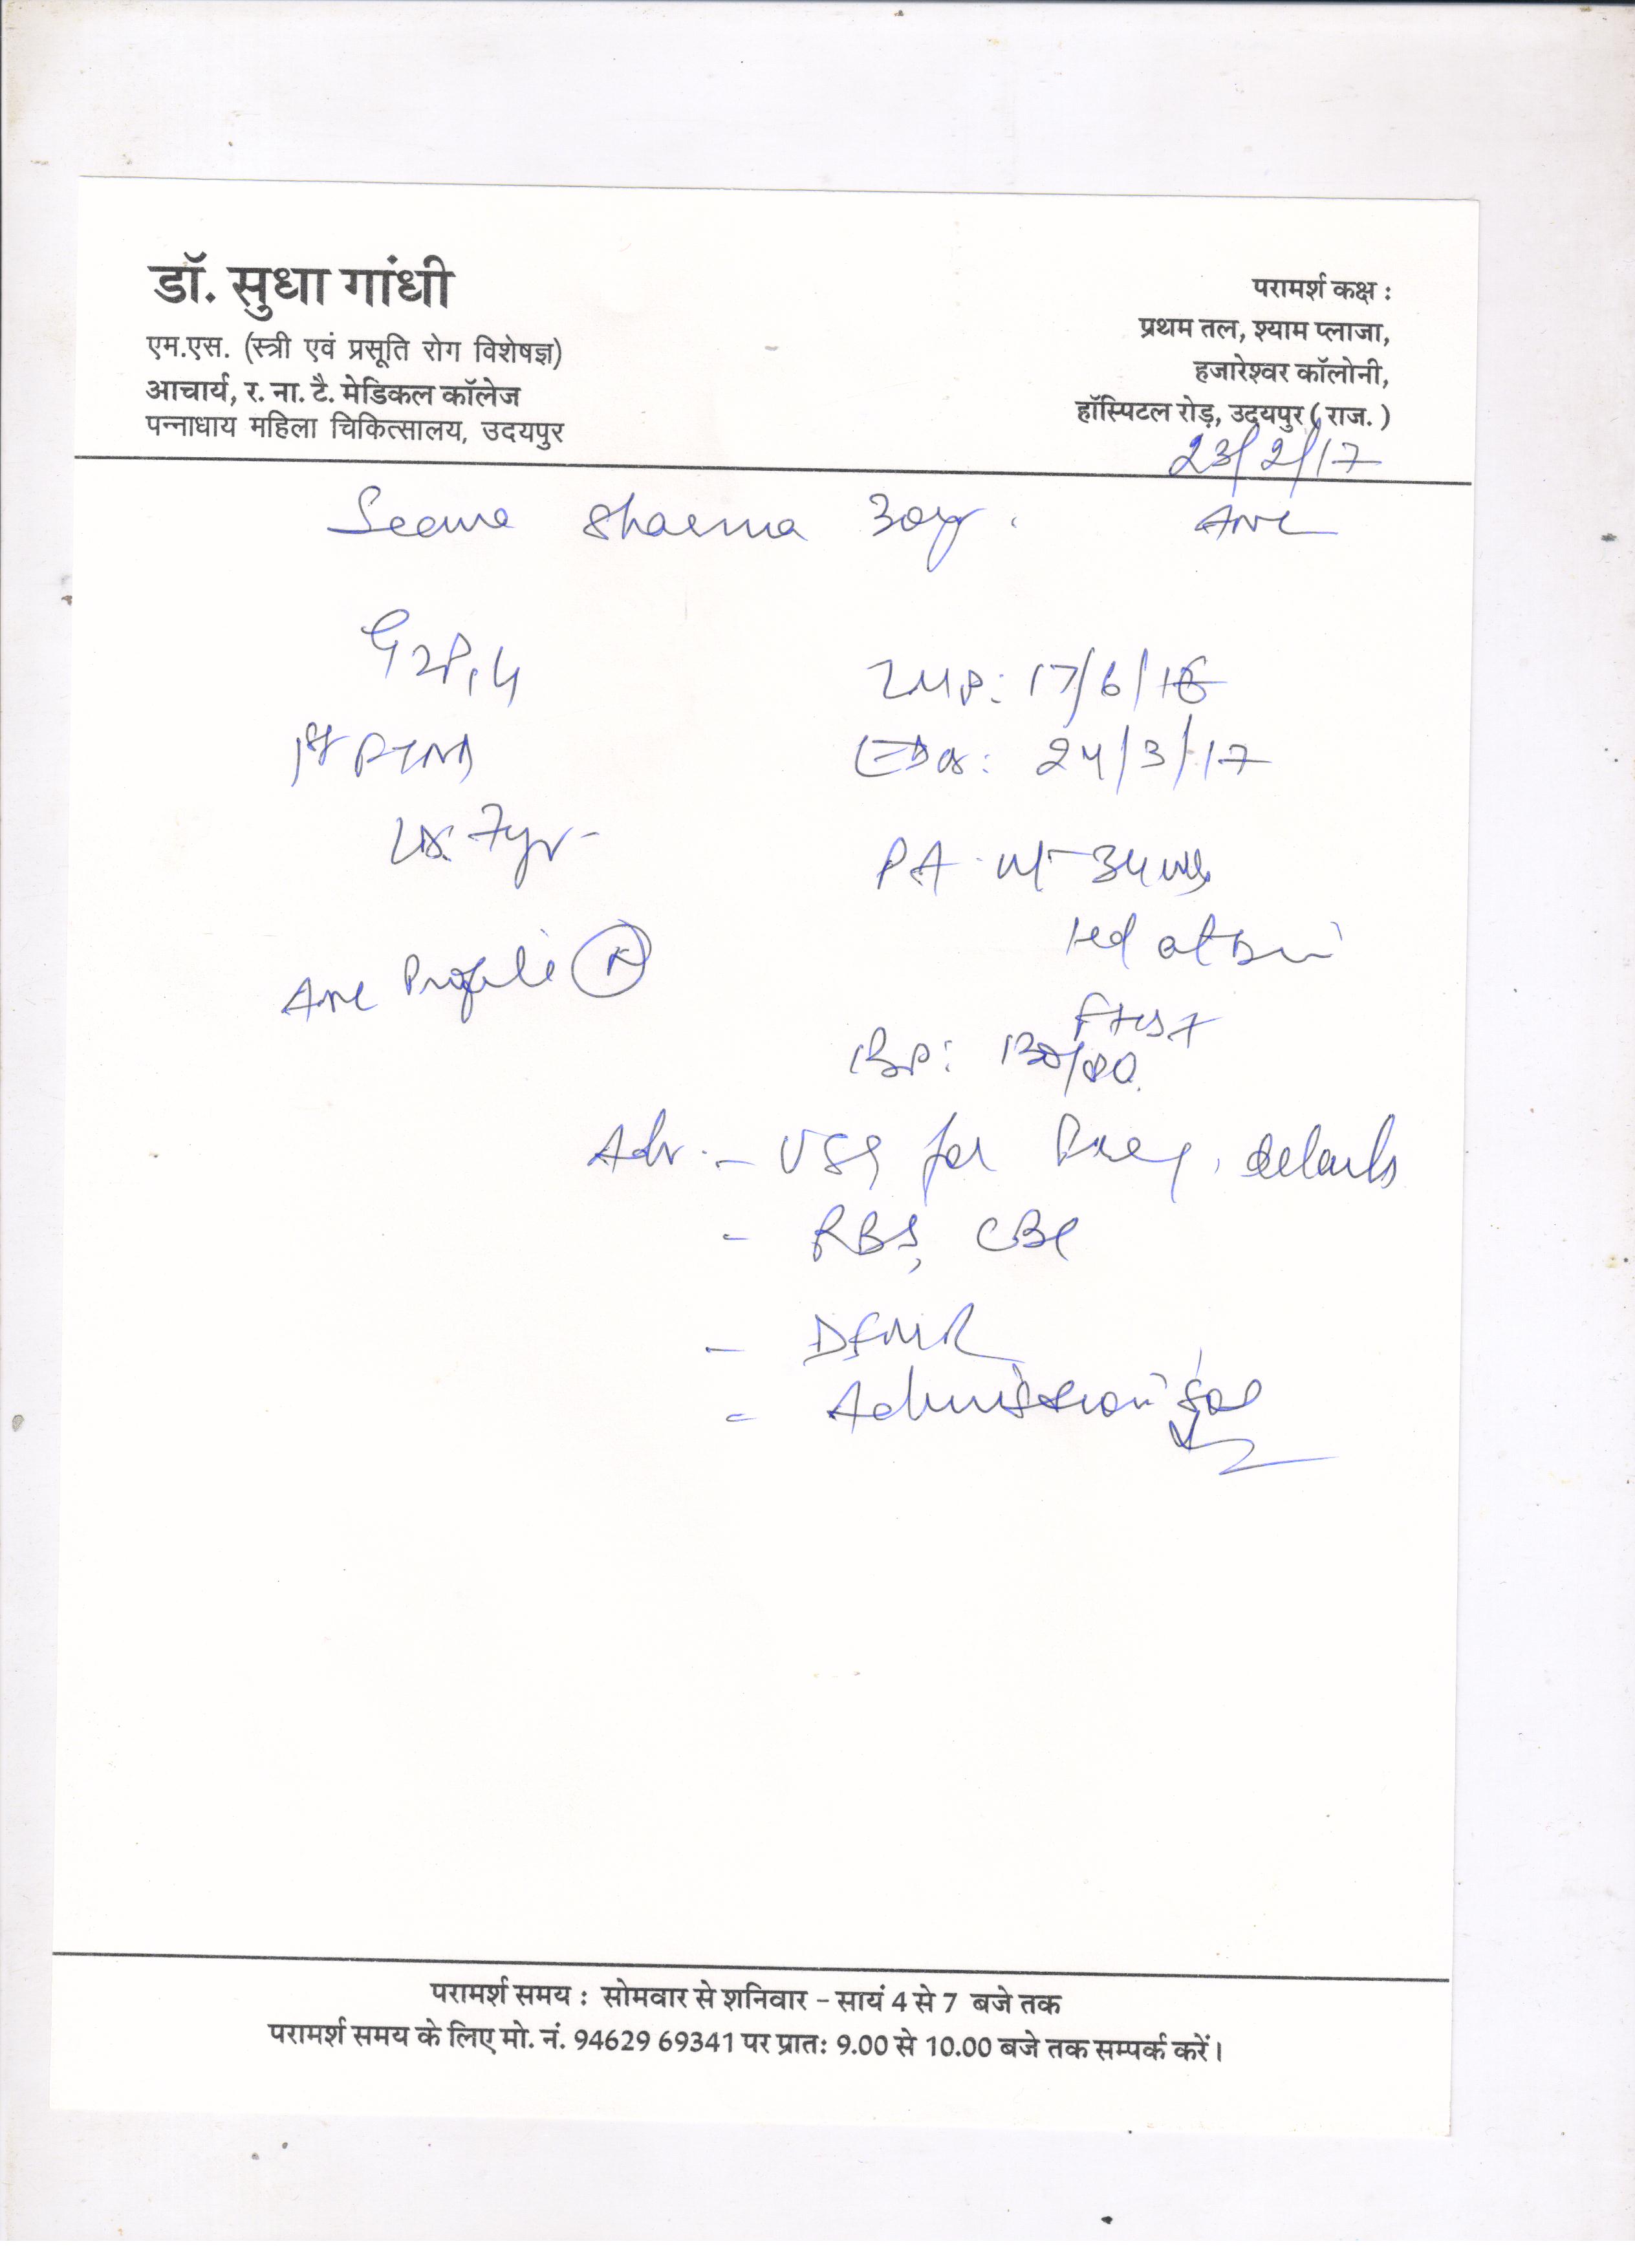 डॉ. सुधा गांधी
एम.एस. (स्त्री एवं प्रसूति रोग विशेषज्ञ)
आचार्य, र. ना. टै. मेडिकल कॉलेज
पन्नाधाय महिला चिकित्सालय, उदयपुर
परामर्श कक्ष :
प्रथम तल, श्याम प्लाजा,
हजारेश्वर कॉलोनी,
हॉस्पिटल रोड़, उदयपुर ( राज. )
23/2/17
Seema Sharma 30yr. ANC
G2P1L1
1st FTND
LB. 7yr
ANC Profile (N)
LMP: 17/6/16
EDD: 24/3/17
PA 34 wks
FHS +
BP: 130/80
Adv. - USG for Preg. details
- RBS, CBC
- DFMR
- Admission
परामर्श समय : सोमवार से शनिवार – सायं 4 से 7 बजे तक
परामर्श समय के लिए मो. नं. 94629 69341 पर प्रातः 9.00 से 10.00 बजे तक सम्पर्क करें।